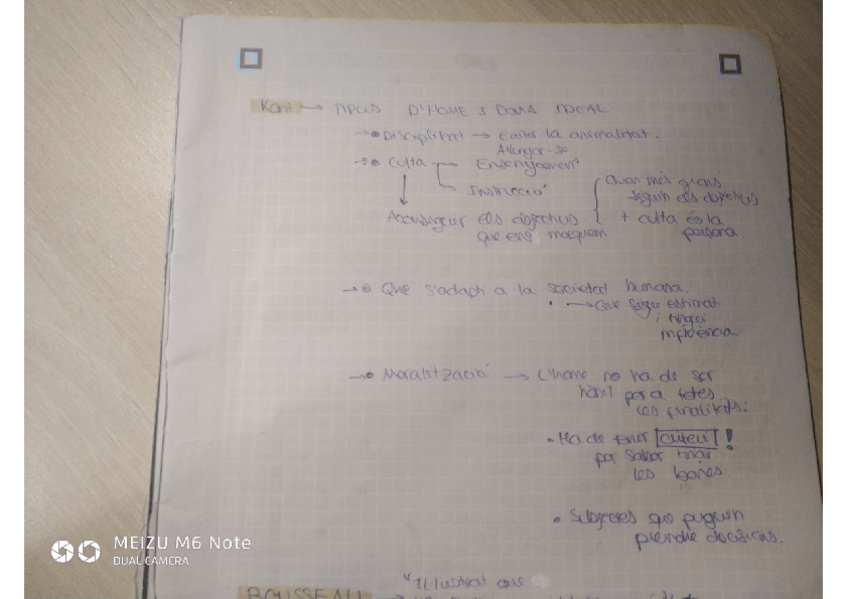 Kant → TIPUS D'HOME I DONA IDEAL
→ • Disciplinat → Evitar la animalitat.
Allunyar-se
→ • Culta — Ensenyament
Instrucció
↓
Aconseguir els objectius
que ens marquem
{ Quan més grans
siguin els objectius
+ culta és la
persona.
→ • Que s'adapti a la societat humana.
• → Que sigui estimat
i tingui
influència.
→ • Moralització → L'home no ha de ser
hàbil per a totes
les finalitats:
• Ha de tenir criteri !
per saber triar
les bones.
• Subjectes que puguin
prendre decisions.
"Il·lustrat que
ROUSSEAU →
MEIZU M6 Note
DUAL CAMERA